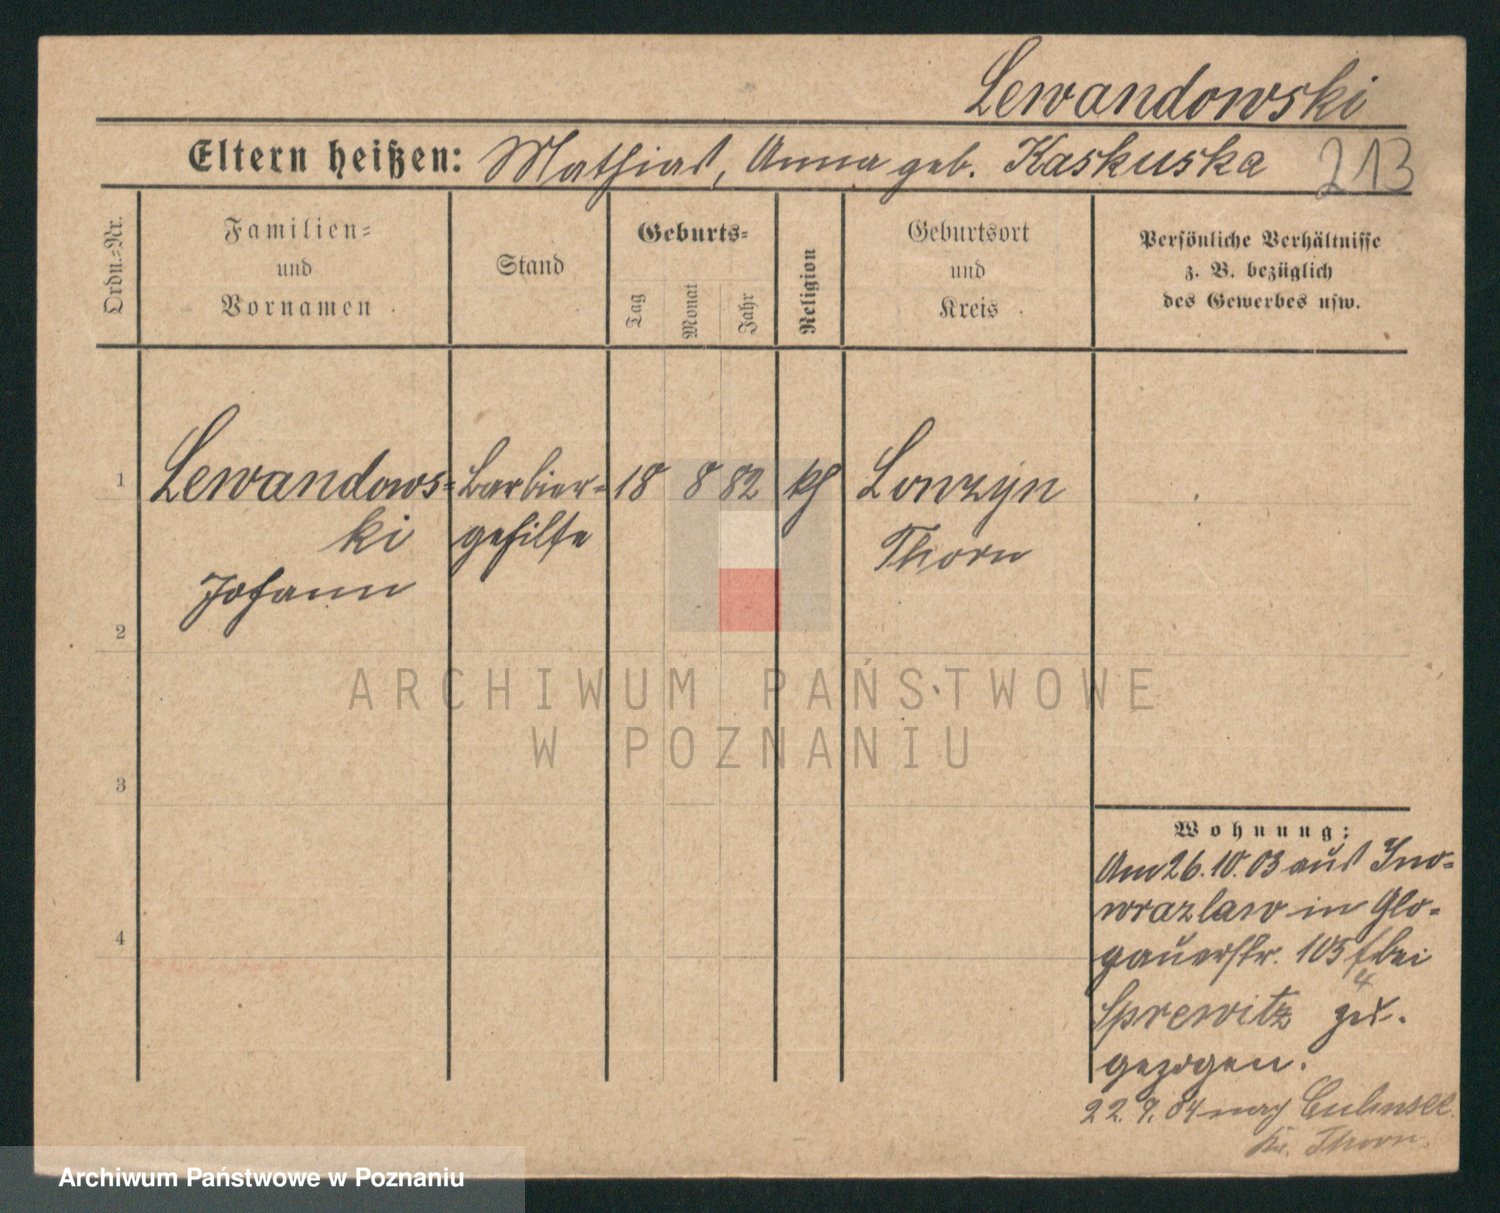 Lewandowski
Eltern heißen: Mathias, Anna geb. Kaskuska 213
Ordn.-Nr.
Familien-
und
Vornamen
Stand
Geburts-
Tag
Monat
Jahr
Religion
Geburtsort
und
Kreis
Persönliche Verhältnisse
z. B. bezüglich
des Gewerbes usw.
1 Lewandows- Barbier- 18 8 82 kh Lonzyn
ki gehilfe Thorn
Johann
2
ARCHIWUM PAŃSTWOWE
W POZNANIU
3
Wohnung:
Am 26.10.03 aus Ino-
wrazlaw in Glo-
4
gauerstr. 105 bei
4
Sprewitz zu-
gezogen.
22.9.04 nach Culmsee
Kr. Thorn.
Archiwum Państwowe w Poznaniu